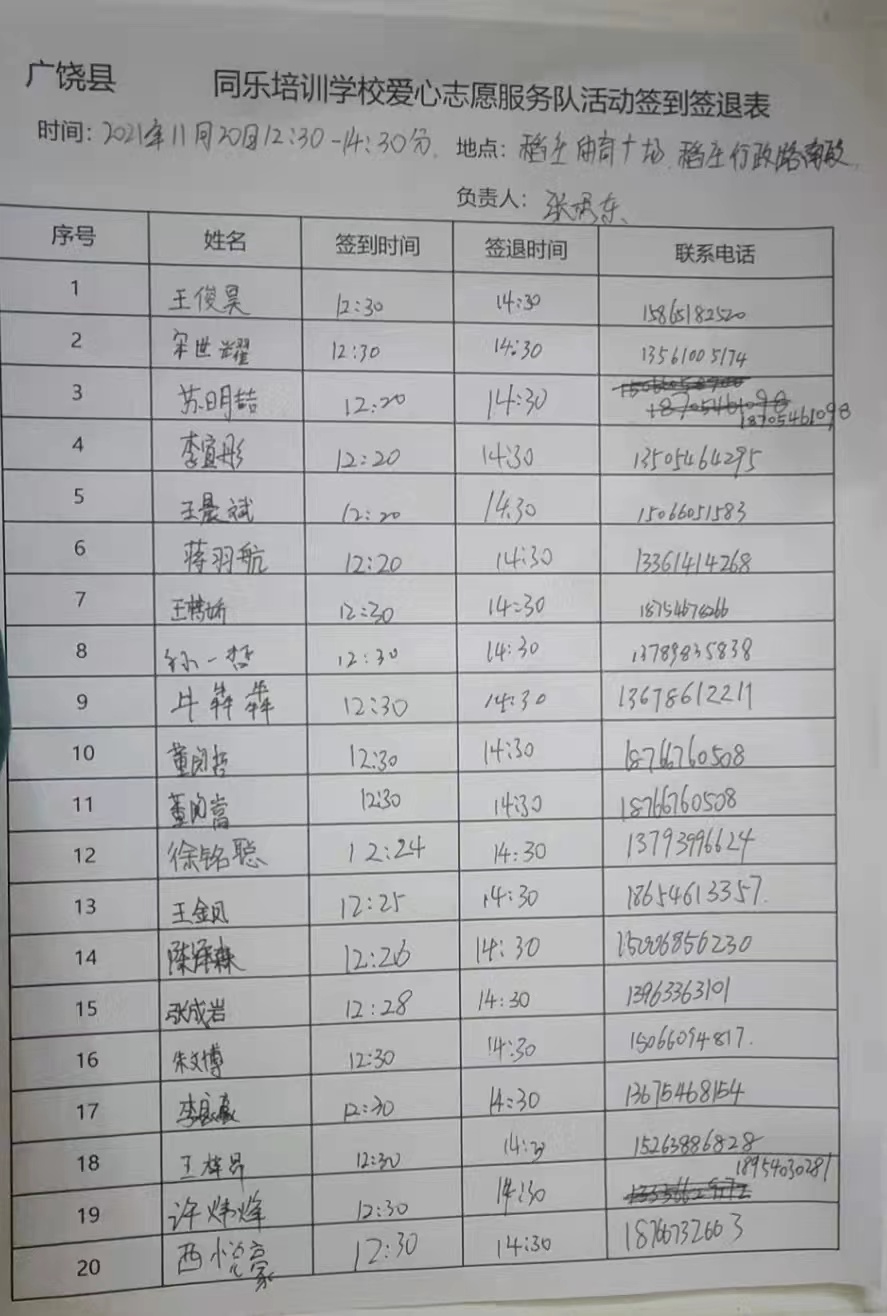 广饶县 同乐培训学校爱心志愿服务队活动签到签退表
时间：2021年11月20日12:30-14:30分. 地点：稻庄体育广场.稻庄行政路南段.
负责人：
序号 姓名 签到时间 签退时间 联系电话
1 王俊昊 12:30 14:30 15865182520
2 宋世耀 12:30 14:30 13561005174
3 苏明喆 12:20 14:30 18705461098 18705461098
4 李宜彤 12:20 14:30 13505464295
5 王晨斌 12:20 14:30 15066051583
6 蒋羽航 12:20 14:30 13361414268
7 12:30 14:30 18754678266
8 孙一哲 12:30 14:30 13789835838
9 牛犇犇 12:30 14:30 13678612211
10 12:30 14:30 18766760508
11 12:30 14:30 18766760508
12 徐铭聪 12:24 14:30 13793996624
13 王金凤 12:25 14:30 18654613357.
14 陈泽森 12:26 14:30 15006856230
15 张成岩 12:28 14:30 13963363101
16 朱文博 12:30 14:30 15066094817.
17 12:30 14:30 13675468154
18 王梓昂 12:30 14:30 15263886828
19 许炜烽 12:30 14:30 18954030281
20 西悦豪 12:30 14:30 18766732603